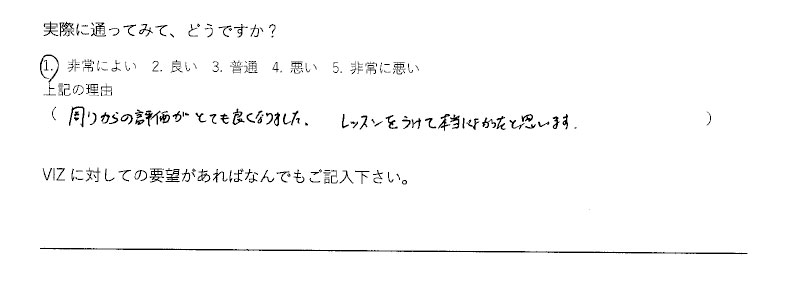 実際に通ってみて、どうですか?
1. 非常によい 2. 良い 3. 普通 4. 悪い 5. 非常に悪い
上記の理由
( 周りからの評価がとても良くなりました、 レッスンをうけて本当によかったと思います. )
VIZ に対しての要望があればなんでもご記入下さい。